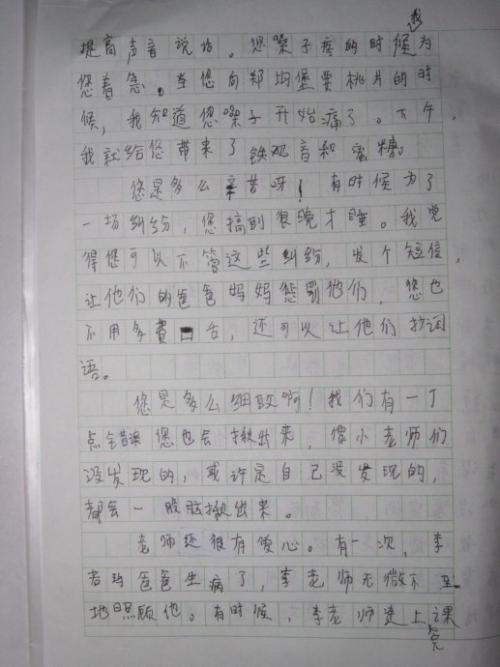 提高声音说话。您嗓子疼的时候我为
您着急。当您向郑均堡要桃片的时
候，我知道您嗓子开始痛了。下午，
我就给您带来了铁观音和蜜糖。
您是多么辛苦呀！有时候为了
一场纠纷，您搞到很晚才睡。我觉
得您可以不管这些纠纷，发个短信，
让他们的爸爸妈妈惩罚他们，您也
不用多费口舌，还可以让他们抄词
语。
您是多么细致啊！我们有一丁
点全错误您也会揪出来，像小老师们
没发现的，或许是自己没发现的，
都会一股脑揪出来。
老师还很有爱心。有一次，李
若 爸爸生病了，李老师无微不至
地照顾他。有时候，李老师 上课